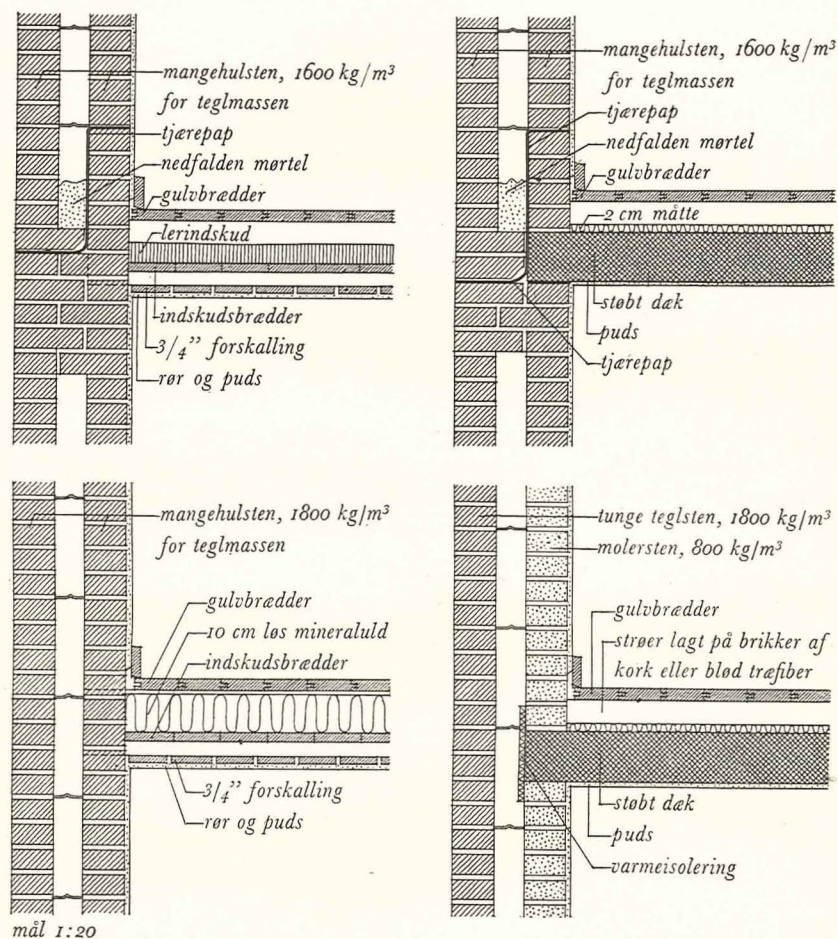 mangehulsten, 1600 kg/m³
for teglmassen
tjærepap
nedfalden mørtel
gulvbrædder
lerindskud
indskudsbrædder
3/4" forskalling
rør og puds
mangehulsten, 1600 kg/m³
for teglmassen
tjærepap
nedfalden mørtel
gulvbrædder
2 cm måtte
støbt dæk
puds
tjærepap
mangehulsten, 1800 kg/m³
for teglmassen
gulvbrædder
10 cm løs mineraluld
indskudsbrædder
3/4" forskalling
rør og puds
tunge teglsten, 1800 kg/m³
molersten, 800 kg/m³
gulvbrædder
strøer lagt på brikker af
kork eller blød træfiber
støbt dæk
puds
varmeisolering
mål 1:20